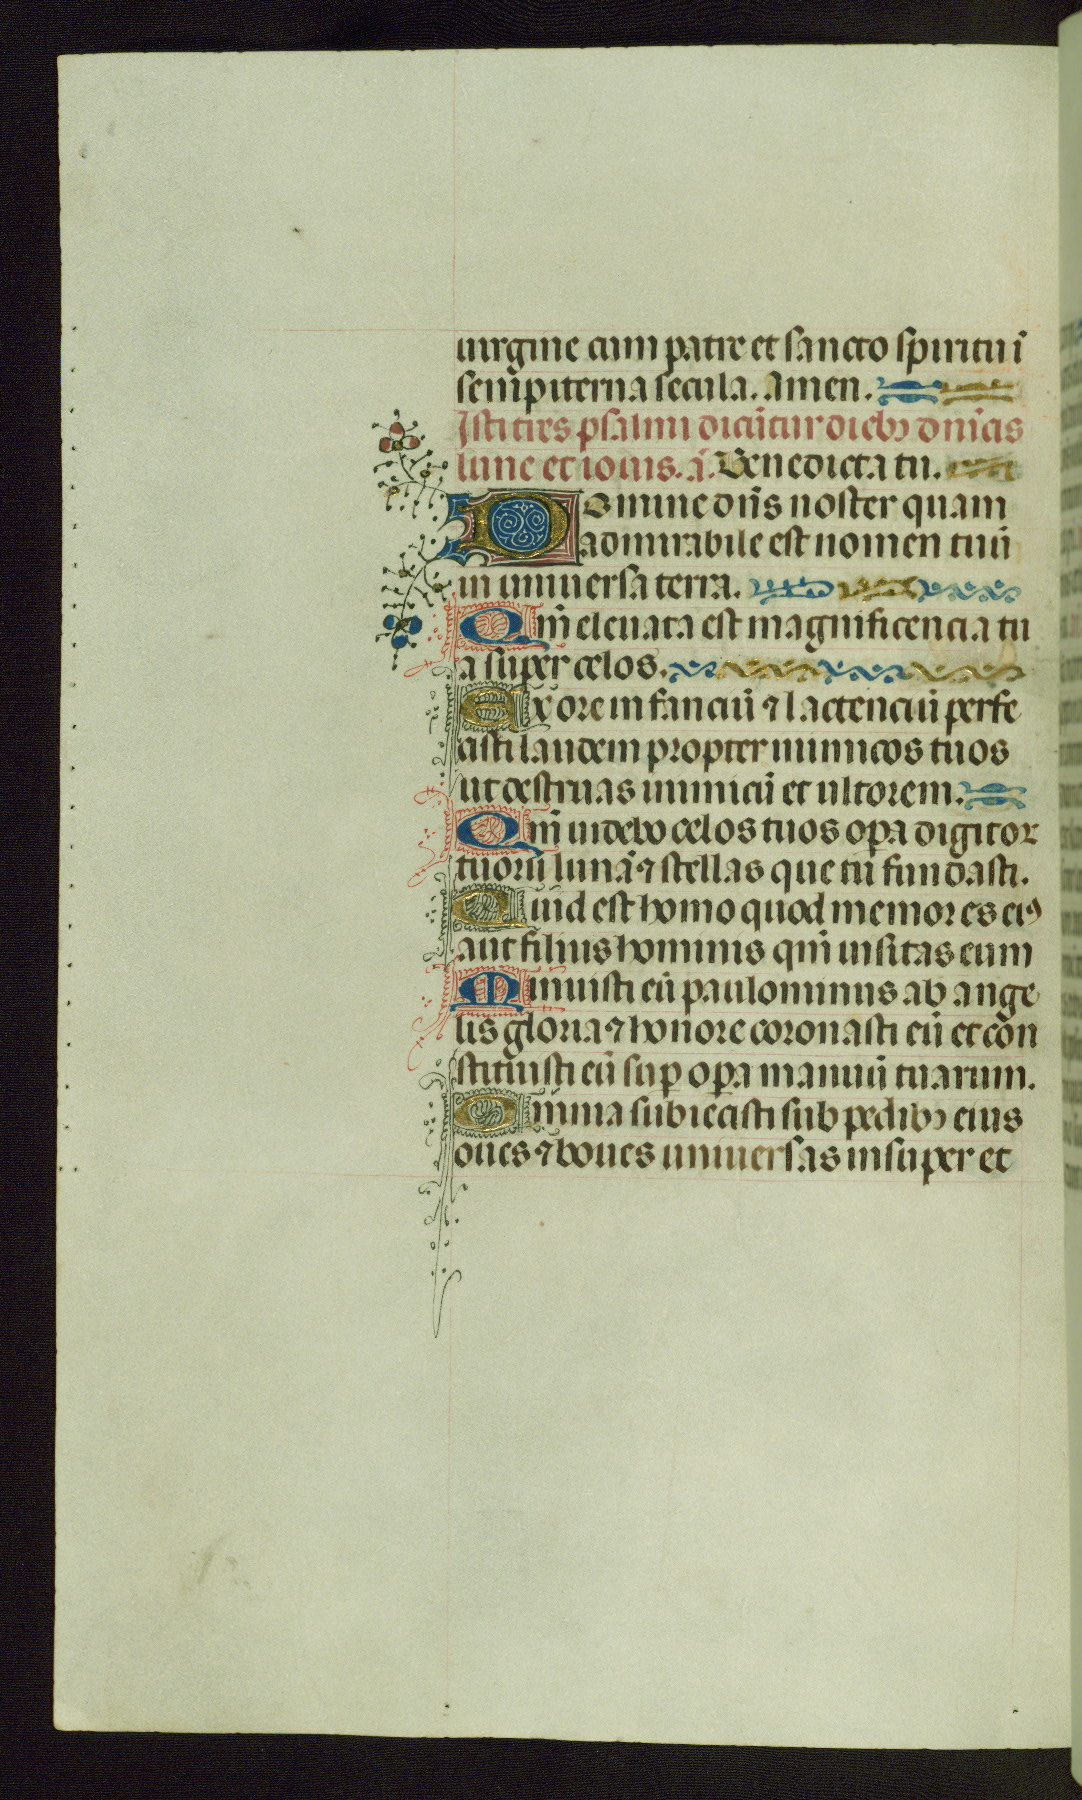 uirgine cum patre et sancto spiritu ī
sempiterna secula. Amen.
Isti tres psalmi dicūtur dieb⁊ dn̄icis
lune et iouis. ā. Benedicta tu.
Domine dn̄s noster quam
admirabile est nomen tuū
in uniuersa terra.
Qm̄ eleuata est magnificencia tu
a super celos.
Ex ore infanciū ⁊ lactenciū perfe
cisti laudem propter inimicos tuos
ut destruas inimicū et ultorem.
Qm̄ uidebo celos tuos opa digitor
tuorū lunā ⁊ stellas que tu fundasti.
Quid est homo quod memor es eiꝰ
aut filius hominis qm̄ uisitas eum
Minuisti eū paulominus ab ange
lis gloria ⁊ honore coronasti eū et con
stituisti eū sup opa manuū tuarum.
Omnia subiecisti sub pedib⁊ eius
oues ⁊ boues uniuersas insuper et